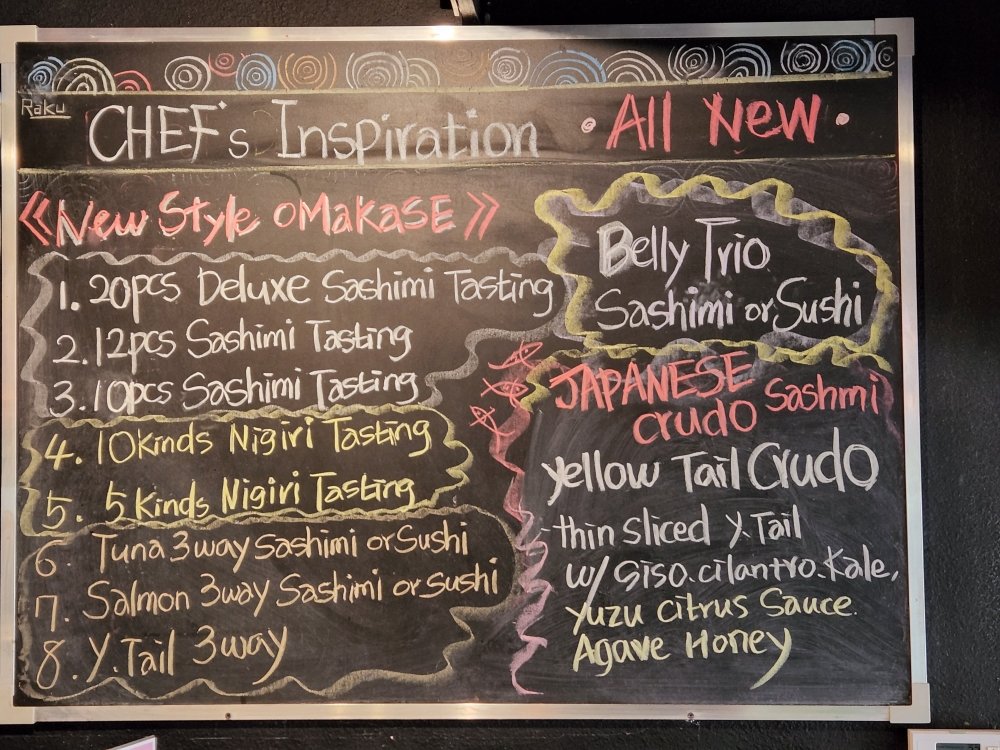 Raku
CHEF's Inspiration • All New •
《New Style OMAKASE》
1. 20pcs Deluxe Sashimi Tasting
2. 12pcs Sashimi Tasting
3. 10pcs Sashimi Tasting
4. 10Kinds Nigiri Tasting
5. 5 Kinds Nigiri Tasting
6. Tuna 3way Sashimi or Sushi
7. Salmon 3way Sashimi or Sushi
8. Y.Tail 3way
Belly Trio
Sashimi or Sushi
JAPANESE Sashmi
crudo
yellow Tail Crudo
- thin sliced Y.Tail
w/ siso.cilantro.Kale,
Yuzu citrus Sauce.
Agave Honey